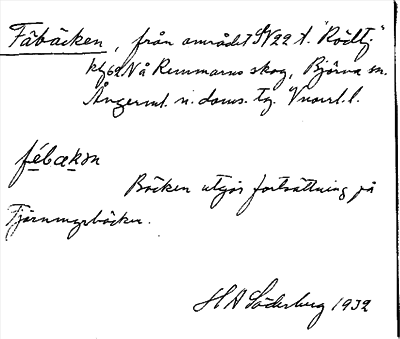 Fäbäcken, från området SV22 t. "Rödtj."
kfg62NÅ Remmarns skog, Björna sn.
Ångerml. n. doms. tg. Vnorrl. l.
fébækən
Bäcken utgör fortsättning på
Tjärnmyrbäcken.
H A Söderberg 1932